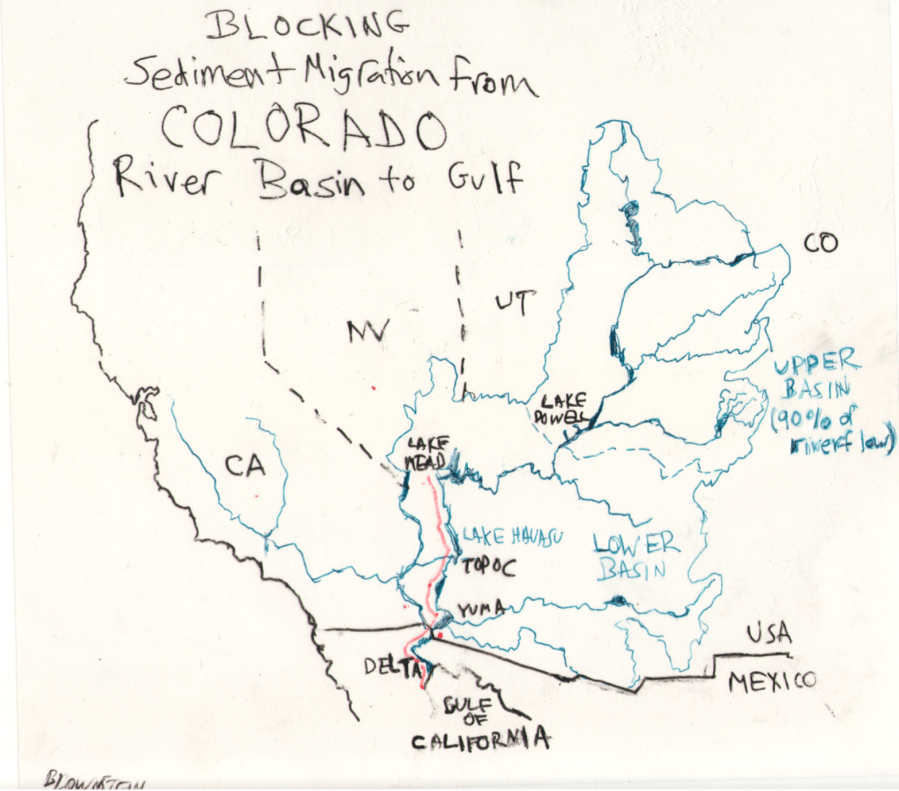 BLOCKING
Sediment Migration from
COLORADO
River Basin to Gulf
CO
UT
NV
UPPER
BASIN
(90% of
riverflow)
LAKE
POWELL
LAKE
MEAD
CA
LAKE HAVASU
LOWER
BASIN
TOPOC
YUMA
USA
MEXICO
DELTA
GULF
OF
CALIFORNIA